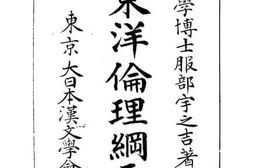 學博士服部宇之吉著
東洋倫理綱
東京大日本漢文學會